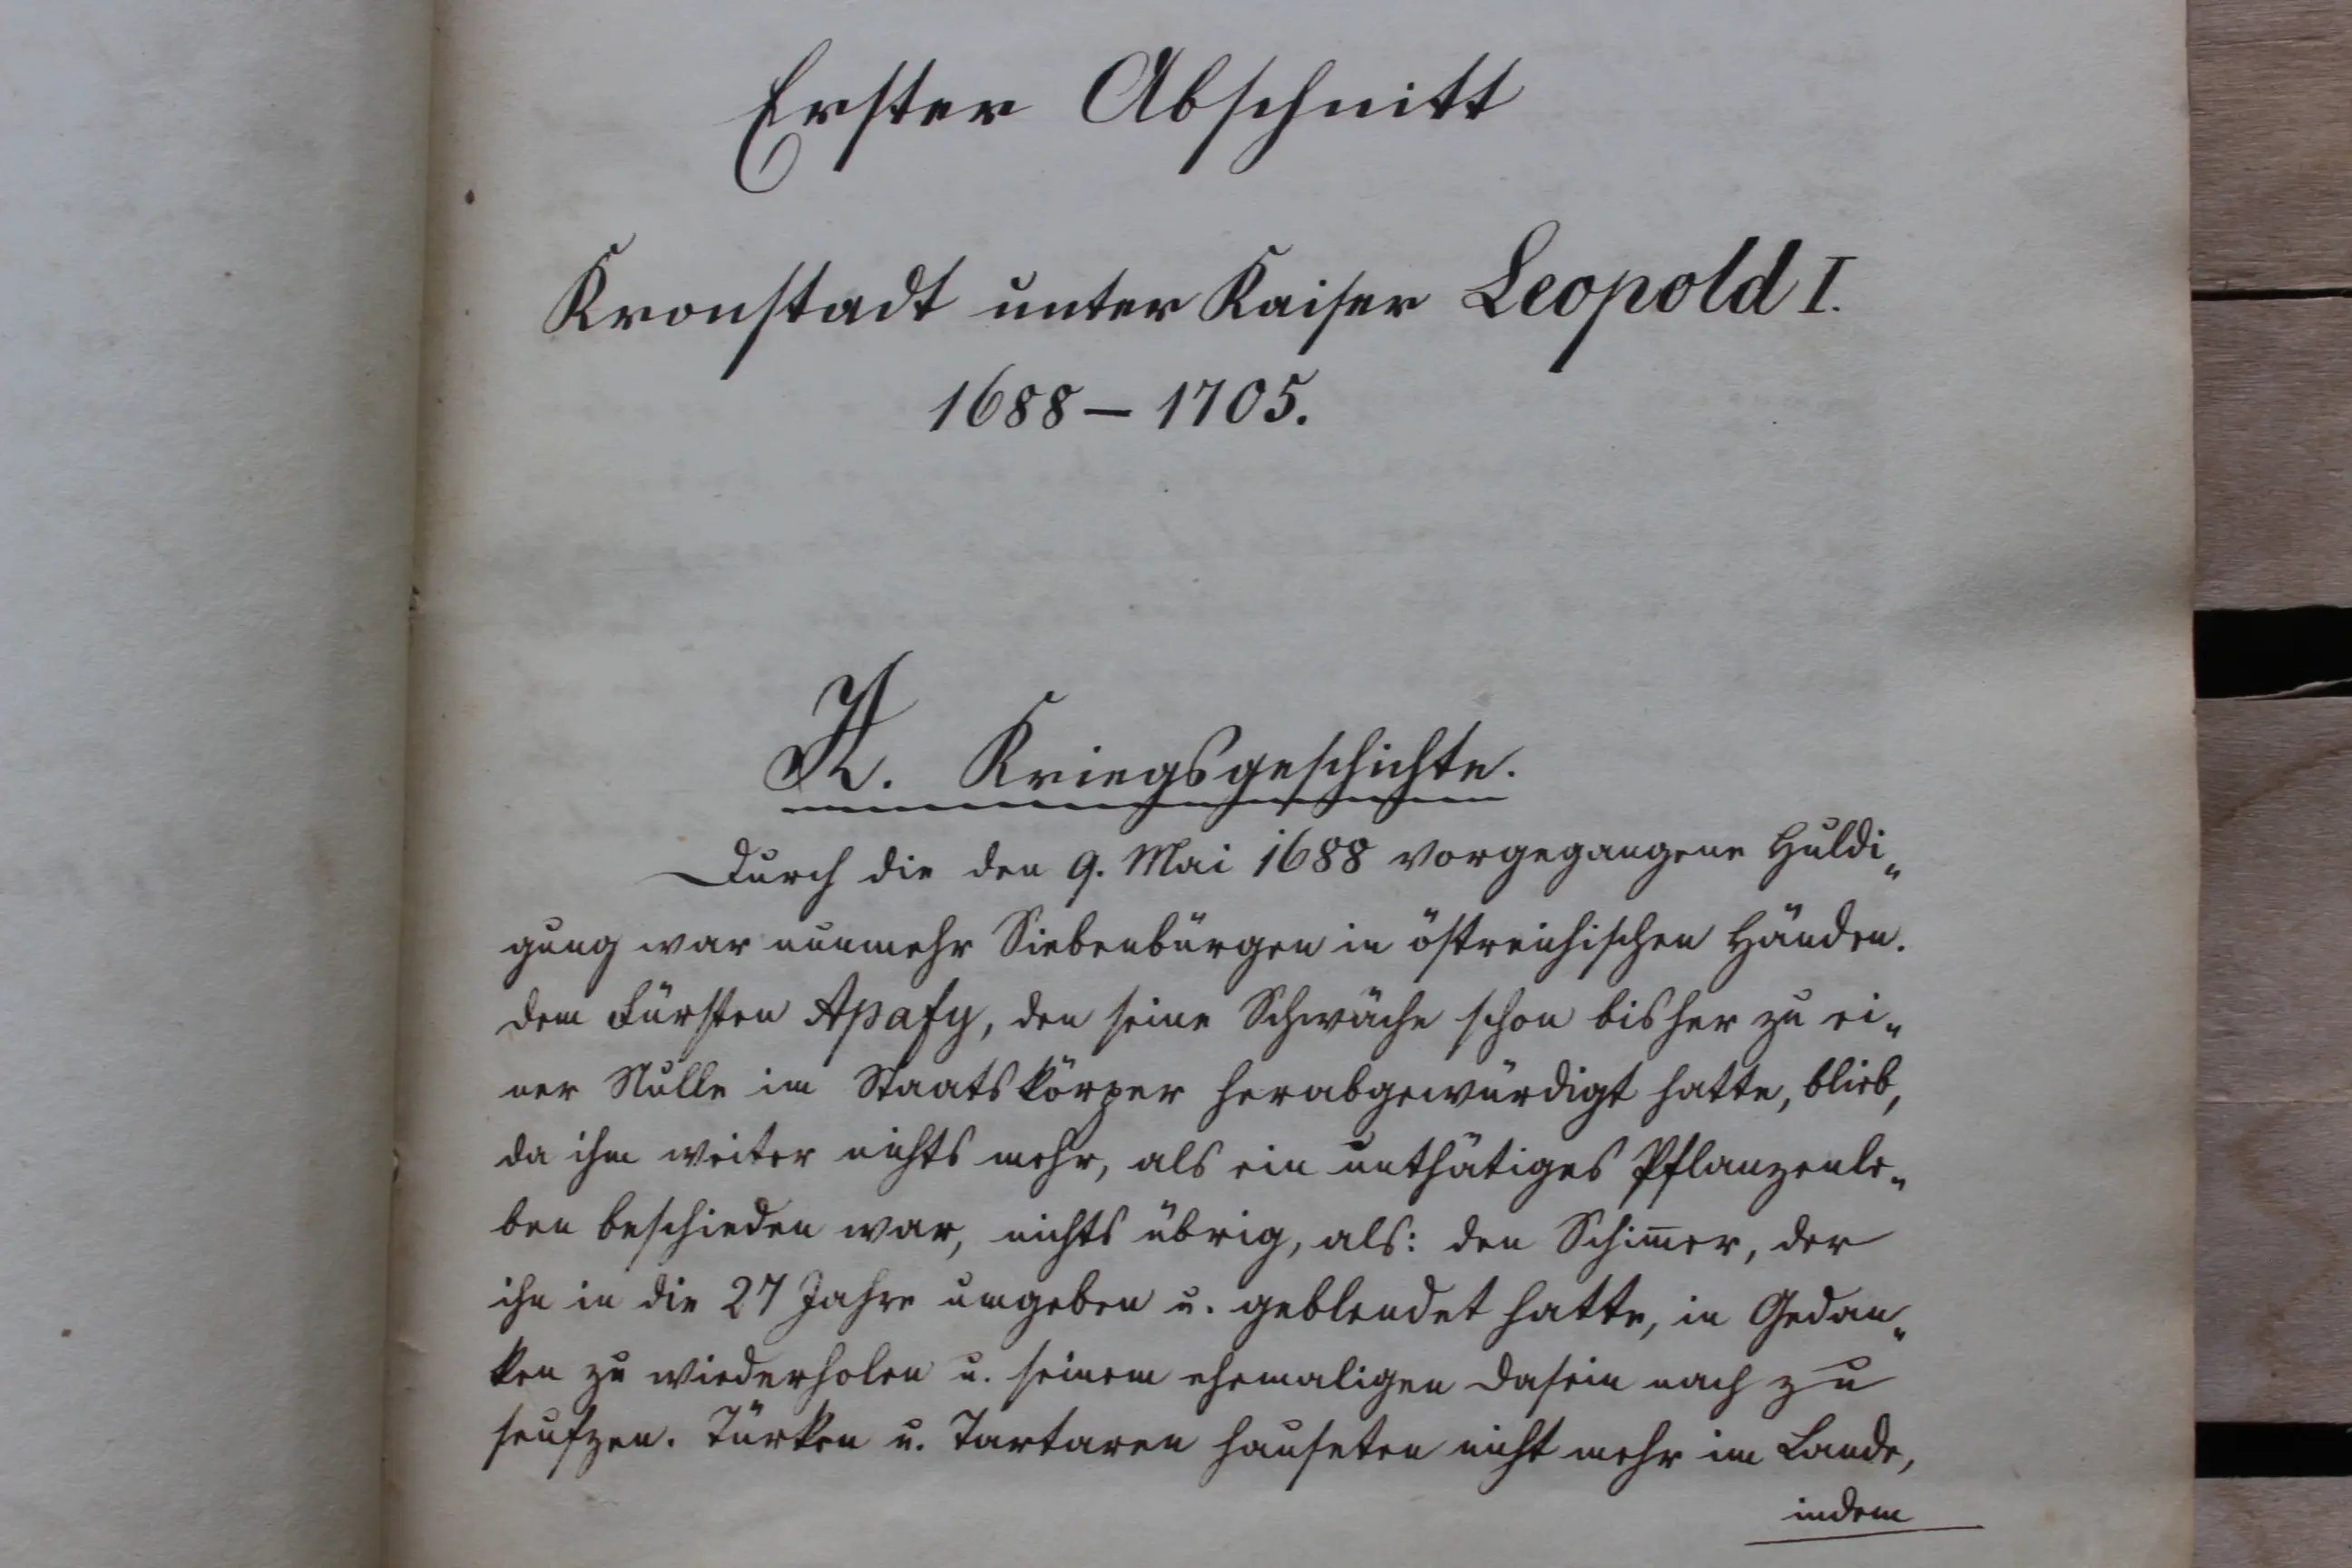 Erster Abschnitt
Kronstadt unter Kaiser Leopold I.
1688 – 1705.
A. Kriegsgeschichte.
Durch die den 9. Mai 1688 vorgegangene Huldi„
gung war nunmehr Siebenbürgen in östreichischen Händen.
Dem Fürsten Apafy, den seine Schwäche schon bisher zu ei„
ner Nulle im Staatskörper herabgewürdigt hatte, blieb,
da ihm weiter nichts mehr, als ein unthätiges Pflanzenle„
ben beschieden war, nichts übrig, als: den Schim̅er, der
ihn in die 27 Jahre umgeben u. geblendet hatte, in Gedan„
ken zu wiederholen u. seinem ehemaligen Dasein nach zu
seufzen. Türken u. Tartaren hauseten nicht mehr im Lande,
indem